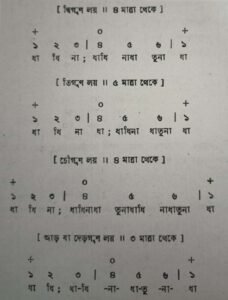 [ দ্বিগুণ লয় ॥ ৪ মাত্রা থেকে ]
+ o +
১ ২ ৩ | ৪ ৫ ৬ | ১
ধা ধি না ; ধাধি নাধা তুনা ধা
[ তিগুণ লয় ॥ ৫ মাত্রা থেকে ]
+ o +
১ ২ ৩ | ৪ ৫ ৬ | ১
ধা ধি না | ধা ; ধাধিনা ধাতুনা ধা
[ চৌগুণ লয় ॥ ৪ মাত্রা থেকে ]
+ o +
১ ২ ৩ | ৪ ৫ ৬ | ১
ধা ধি না ; ধাধিনাধা তুনাধাধি নাধাতুনা ধা
[ আড় বা দেড়গুণ লয় ॥ ৩ মাত্রা থেকে ]
+ o +
১ ২ ৩ | ৪ ৫ ৬ | ১
ধা ধি ; ধা-ধি -না- ধা-তু -না- ধা